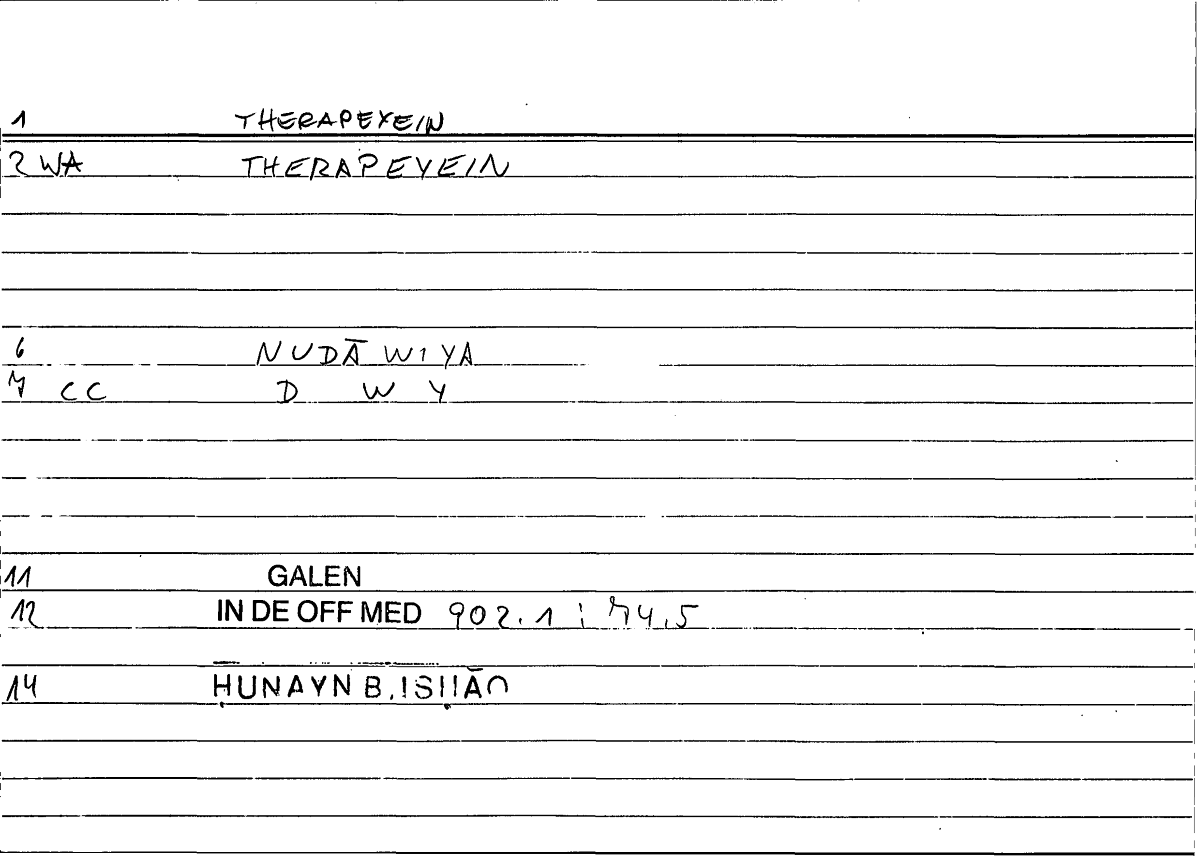 1 THERAPEYEIN
2 WA THERAPEYEIN
6 NUDĀWIYA
7 CC D W Y
11 GALEN
12 IN DE OFF MED 902.1 ; 74.5
14 ḤUNAYN B. ISḤĀQ